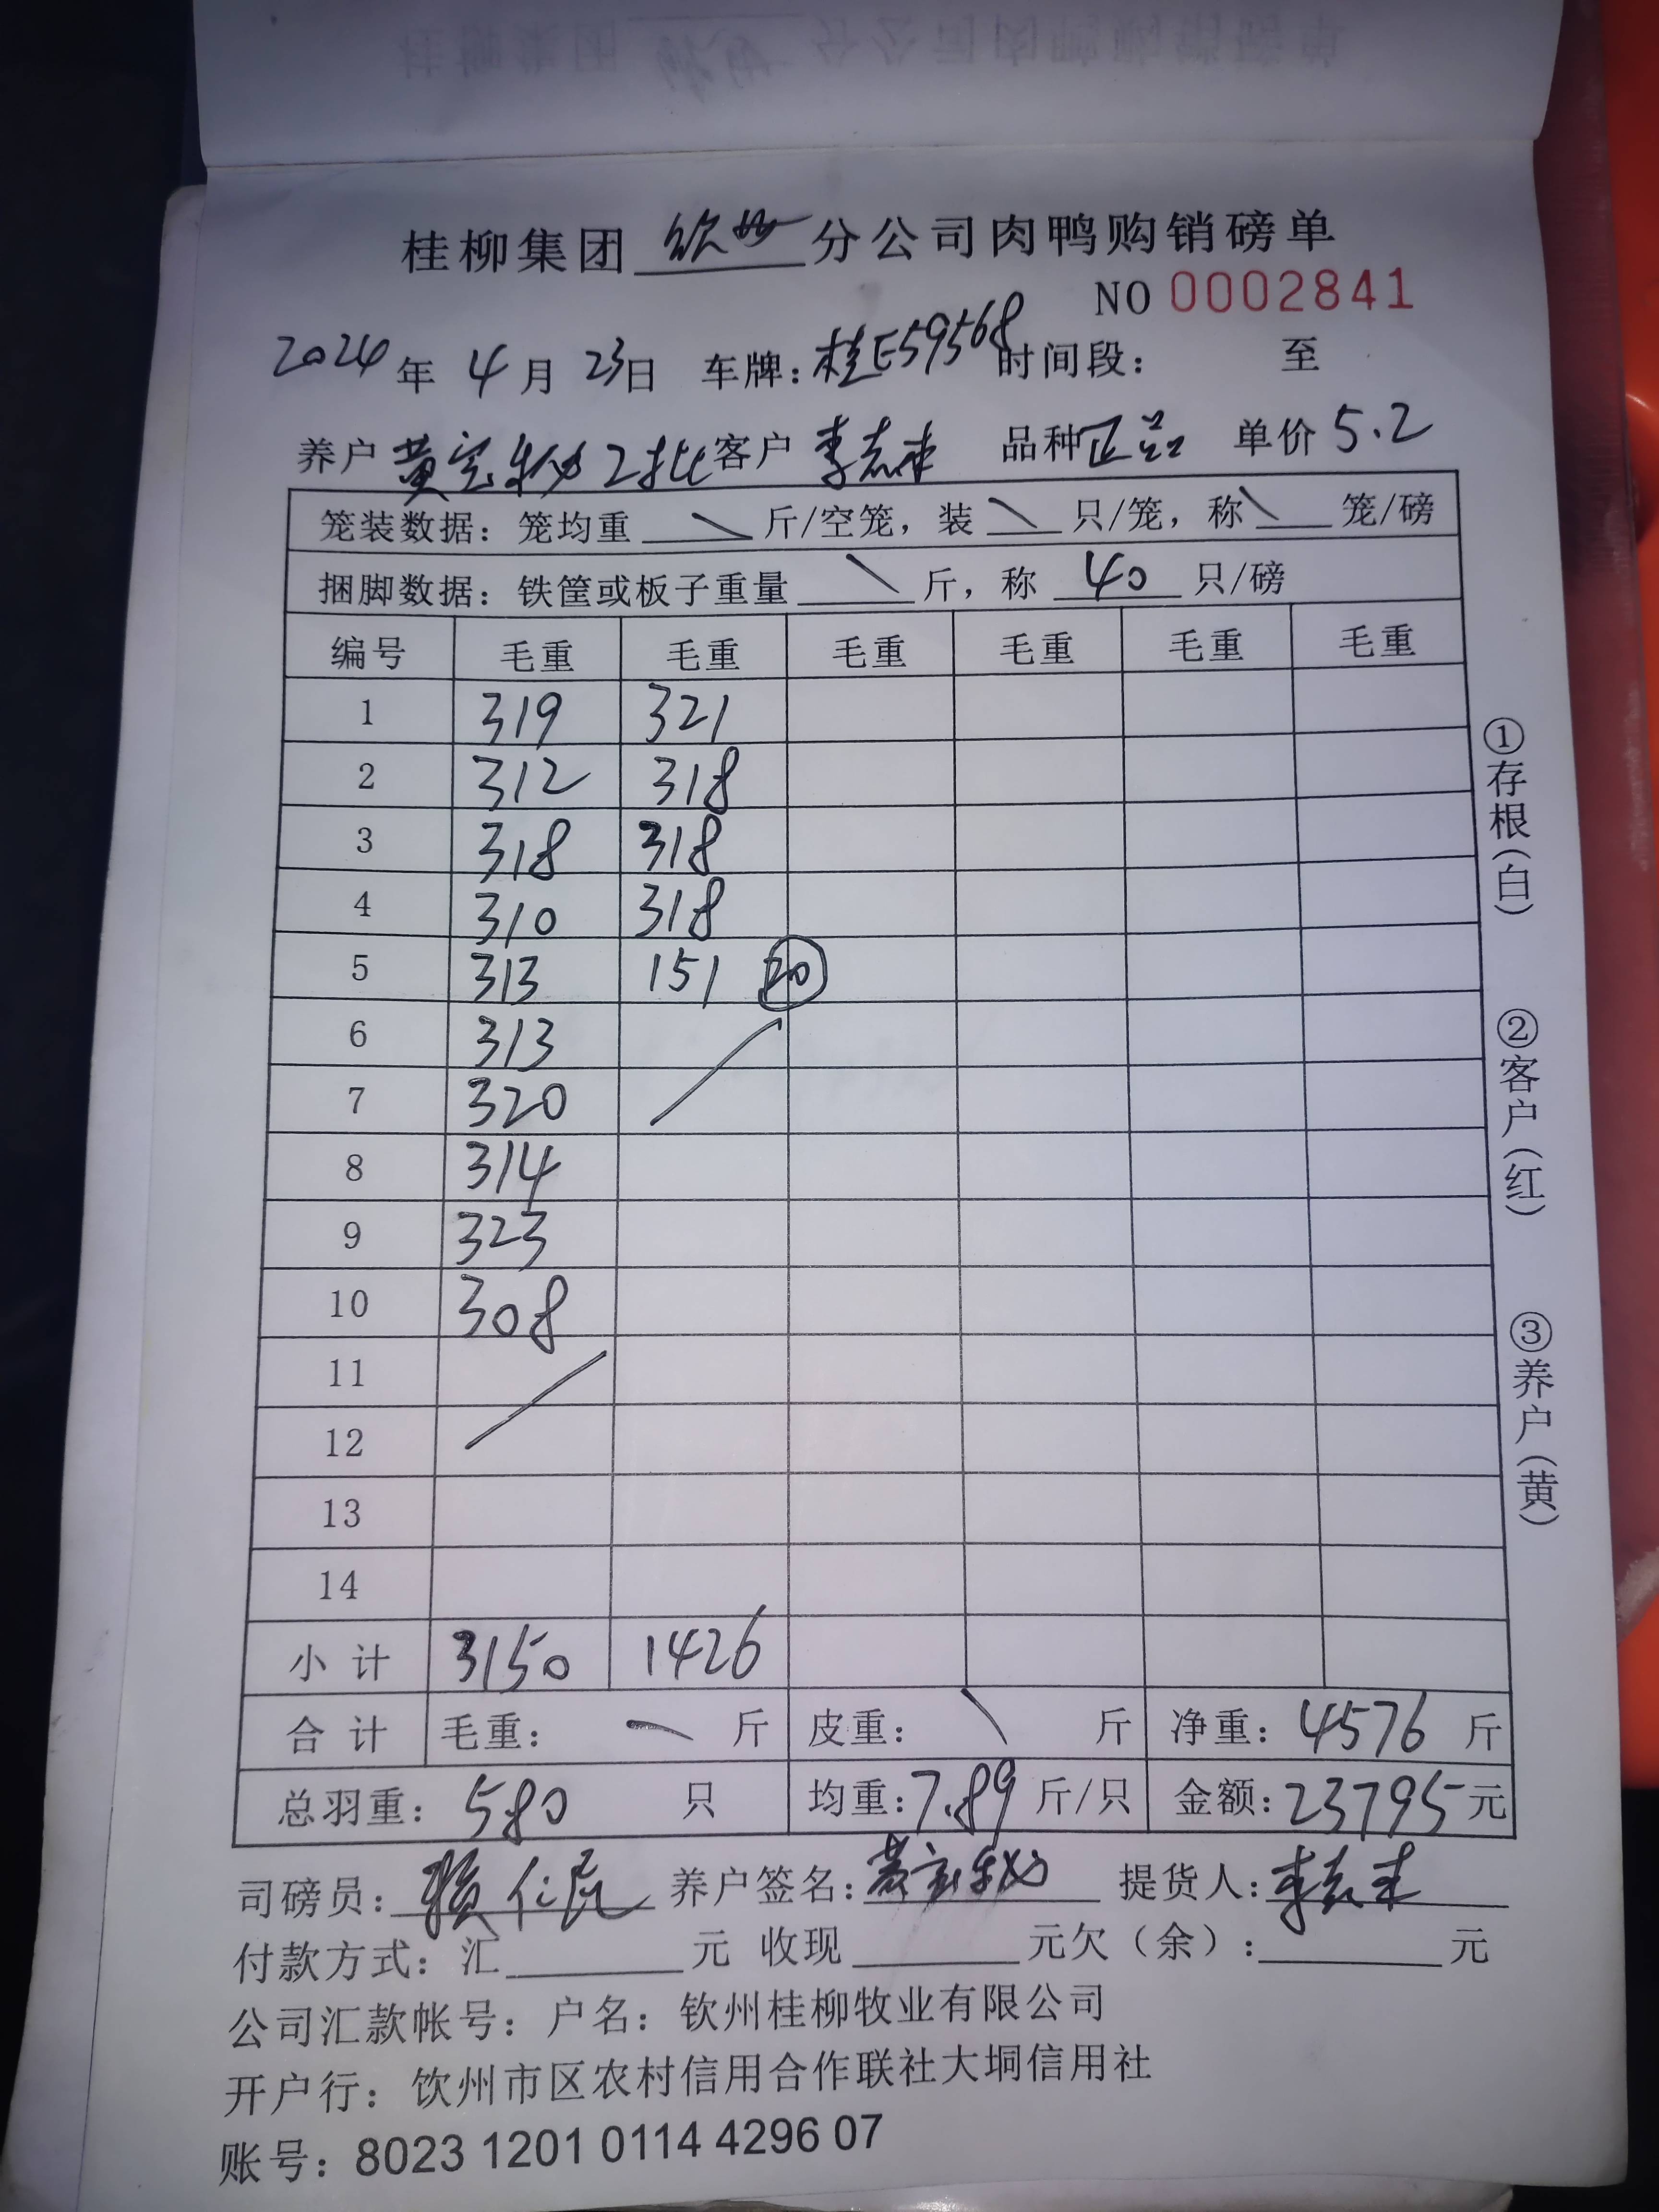 桂柳集团 钦州 分公司肉鸭购销磅单
NO 0002841
2024 年 4 月 23日 车牌：桂E59568 时间段： 至
养户 黄宝 2批 客户 李志来 品种 正品 单价 5.2
笼装数据：笼均重 \ 斤/空笼，装 \ 只/笼，称 \ 笼/磅
捆脚数据：铁筐或板子重量 \ 斤，称 40 只/磅
编号 毛重 毛重 毛重 毛重 毛重 毛重
1 319 321
2 312 318
3 318 318
4 310 318
5 313 151 20
6 313
7 320
8 314
9 323
10 308
11
12
13
14
小计 3150 1426
合计 毛重： 斤 皮重： \ 斤 净重：4576 斤
总羽重：580 只 均重：7.89 斤/只 金额：23795元
司磅员：赖仁 养户签名：黄宝 提货人：李志来
付款方式：汇 元 收现 元欠（余）： 元
公司汇款帐号：户名：钦州桂柳牧业有限公司
开户行：钦州市区农村信用合作联社大垌信用社
账号：8023 1201 0114 4296 07
①存根（白）
②客户（红）
③养户（黄）